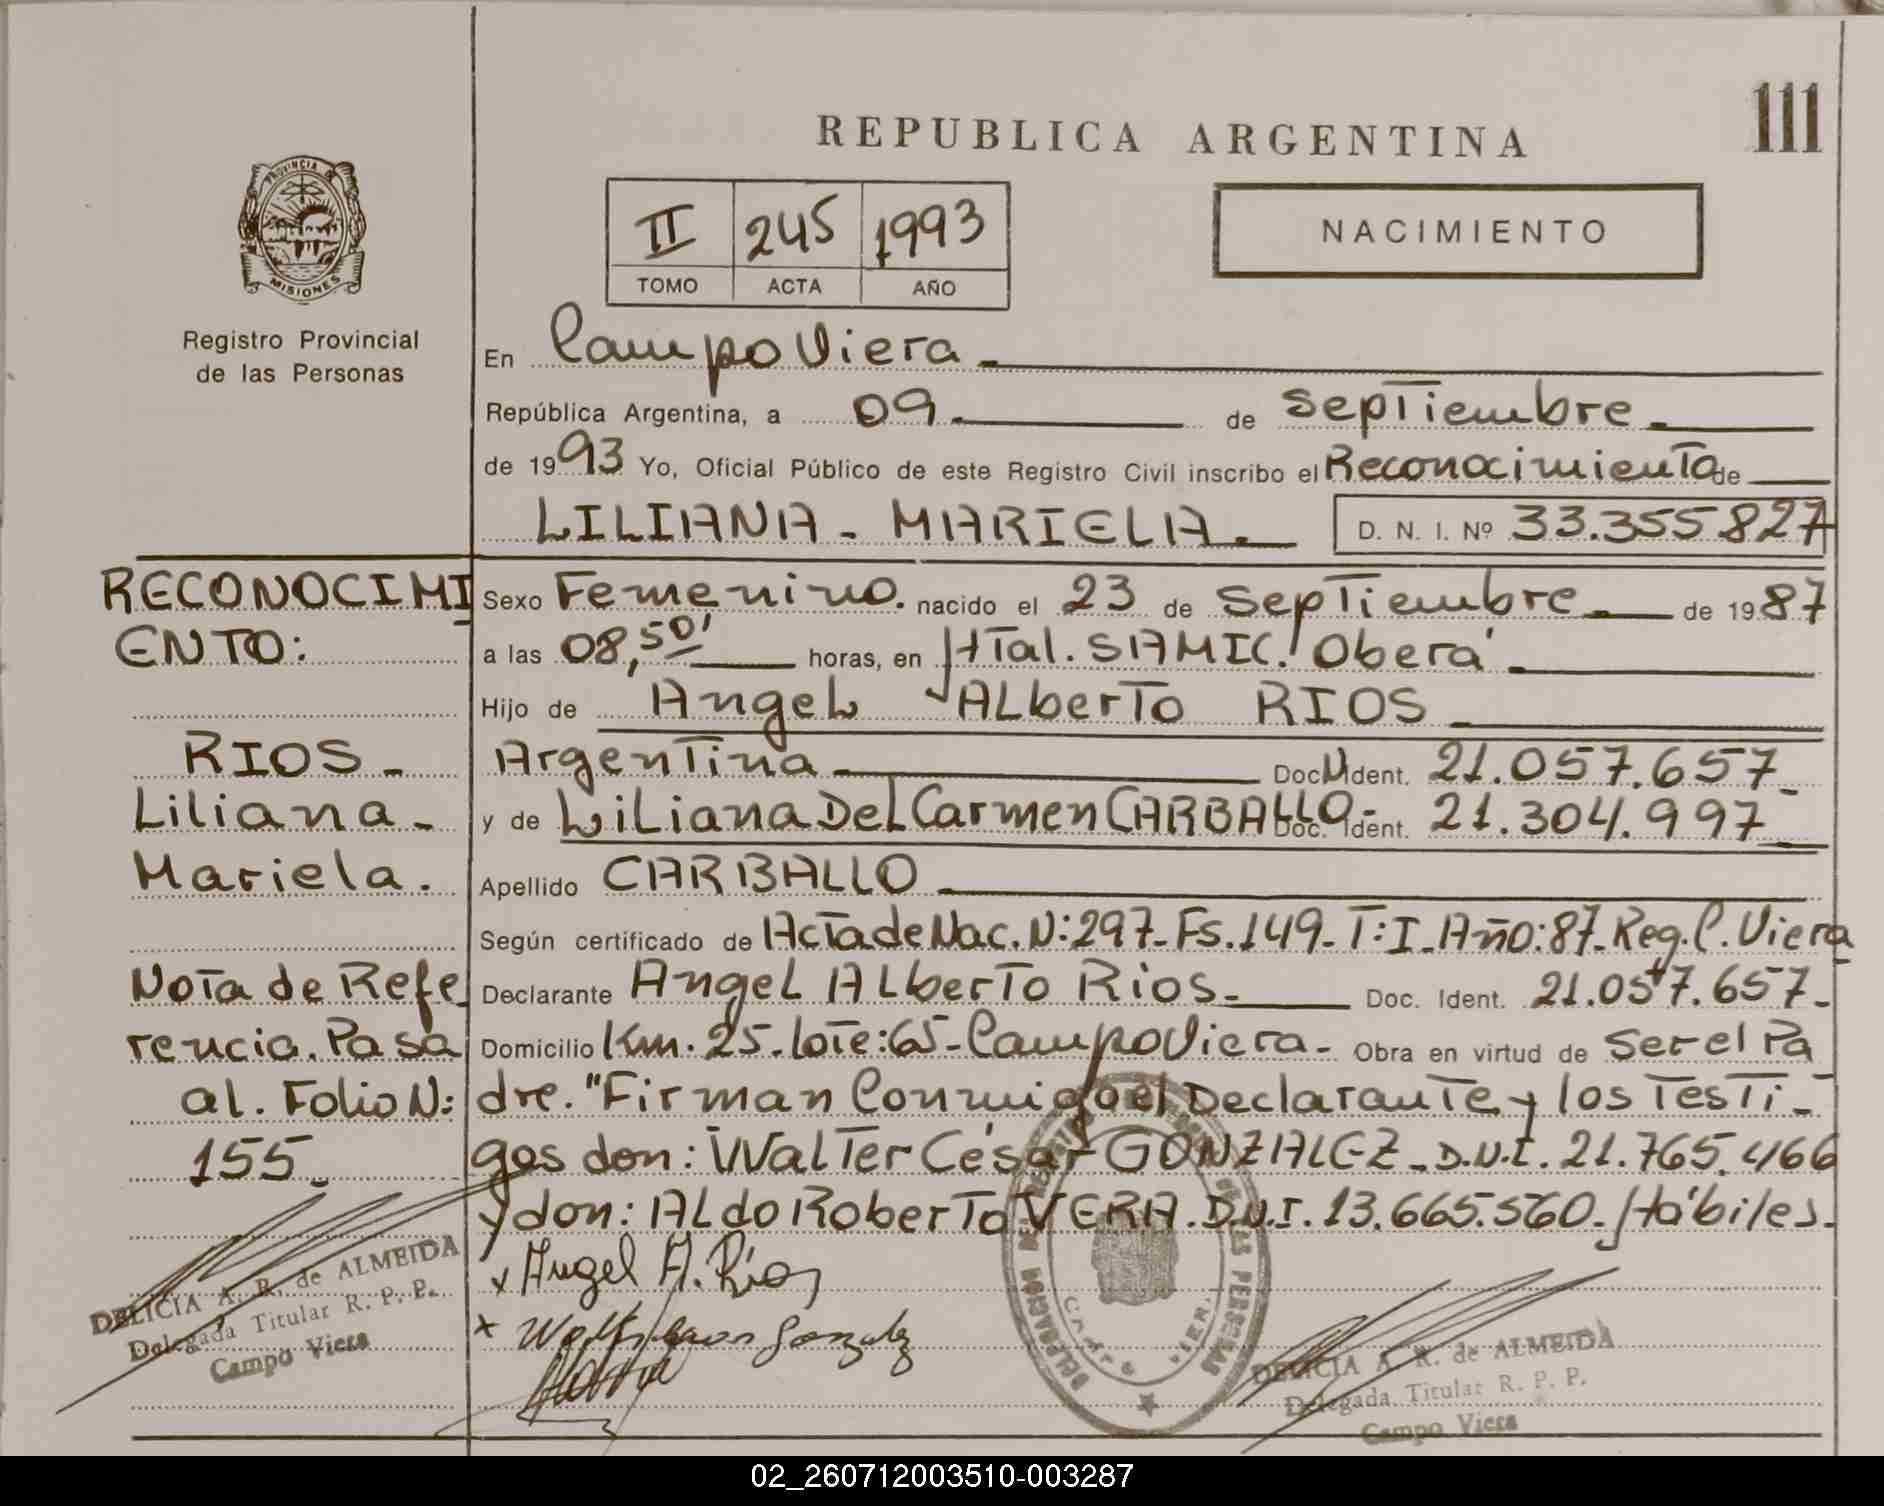 REPUBLICA ARGENTINA
111
PROVINCIA DE
MISIONES
Registro Provincial
de las Personas
II 245 1993
TOMO ACTA AÑO
NACIMIENTO
En Campo Viera
República Argentina, a 09 de Septiembre
de 1993 Yo, Oficial Público de este Registro Civil inscribo el Reconocimiento de
LILIANA - MARIELA. D. N. I. Nº 33.355827
Sexo Femenino. nacido el 23 de Septiembre de 1987
a las 08,50' horas, en Htal. SAMIC. Oberá
Hijo de Angel Alberto RIOS
Argentina Doc. Ident. 21.057.657
y de Liliana Del Carmen CARBALLO - Doc. Ident. 21.304.997
Apellido CARBALLO
Según certificado de Acta de Nac. N: 297- Fs. 149- T: I- Año: 87- Reg. C. Viera
Declarante Angel Alberto Rios- Doc. Ident. 21.057.657-
Domicilio Km. 25- lote: 65- Campo Viera- Obra en virtud de Ser el Pa
dre. "Firman Conmigo el Declarante y los Testi-
gos don: Walter César GONZALEZ- D.N.I. 21.765.466
y don: Aldo Roberto VERA. D.N.I. 13.665.560. Hábiles.
x Angel A. Ríos
x
RECONOCIMI
ENTO:
RIOS -
Liliana -
Mariela.
Nota de Refe
rencia. Pasa
al. Folio N:
155.
DELICIA A. R. de ALMEIDA
Delegada Titular R. P. P.
Campo Viera
DELICIA A. R. de ALMEIDA
Delegada Titular R. P. P.
Campo Viera
02_260712003510-003287